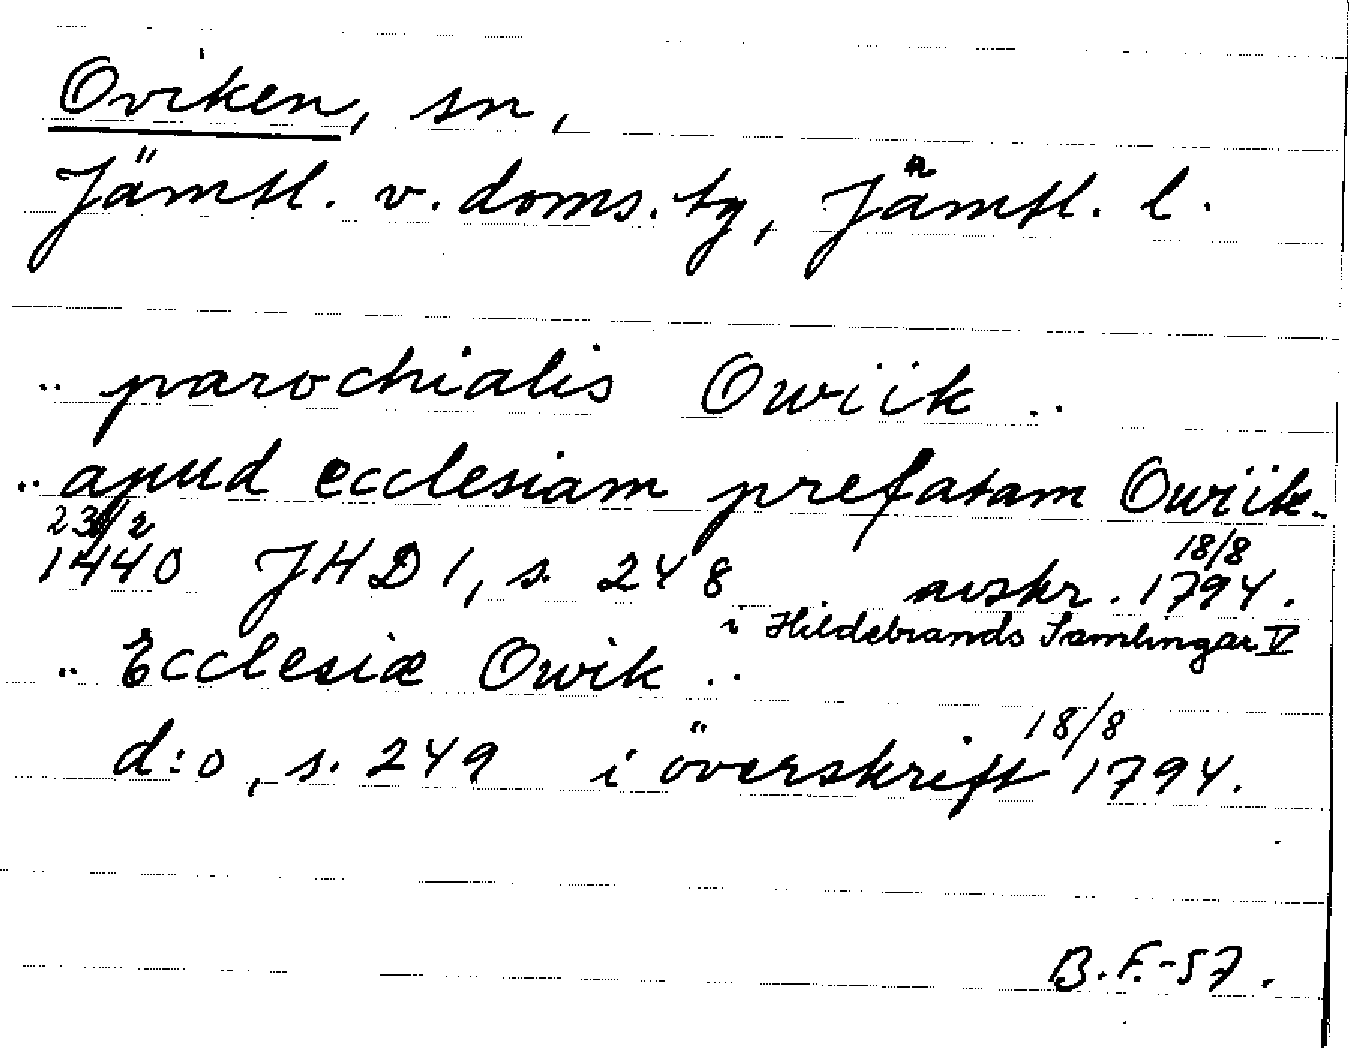 Oviken, sn,
Jämtl. v. doms. tg, Jämtl. l.
.. parochialis Owiik ..
.. apud ecclesiam prefatam Owiik..
23/2 1440 JHD 1, s. 248 avskr. 18/8 1794.
i Hildebrands Samlingar V
.. Ecclesiæ Owik ..
d:o, s. 249 i överskrift 18/8 1794.
B.F.-57.